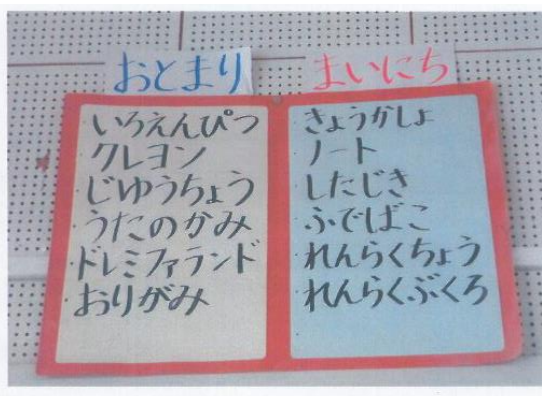 おとまり
いろえんぴつ
クレヨン
じゆうちょう
うたのかみ
ドレミファランド
おりがみ
まいにち
きょうかしょ
ノート
したじき
ふでばこ
れんらくちょう
れんらくぶくろ